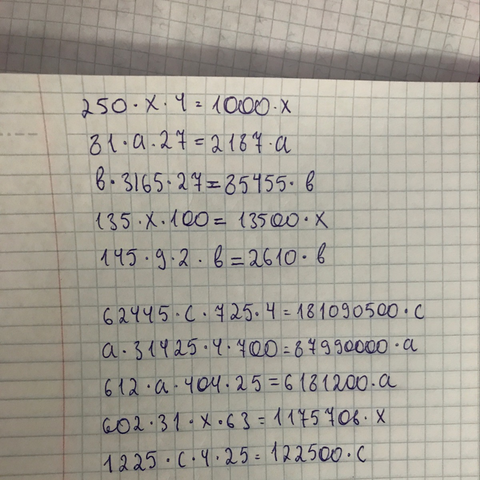 250 · х · 4 = 1000 · х
81 · а · 27 = 2187 · а
в · 3165 · 27 = 85455 · в
135 · х · 100 = 13500 · х
145 · 9 · 2 · в = 2610 · в
62445 · с · 725 · 4 = 181090500 · с
а · 31425 · 4 · 700 = 87990000 · а
612 · а · 404 · 25 = 6181200 · а
602 · 31 · х · 63 = 1175706 · х
1225 · с · 4 · 25 = 122500 · с